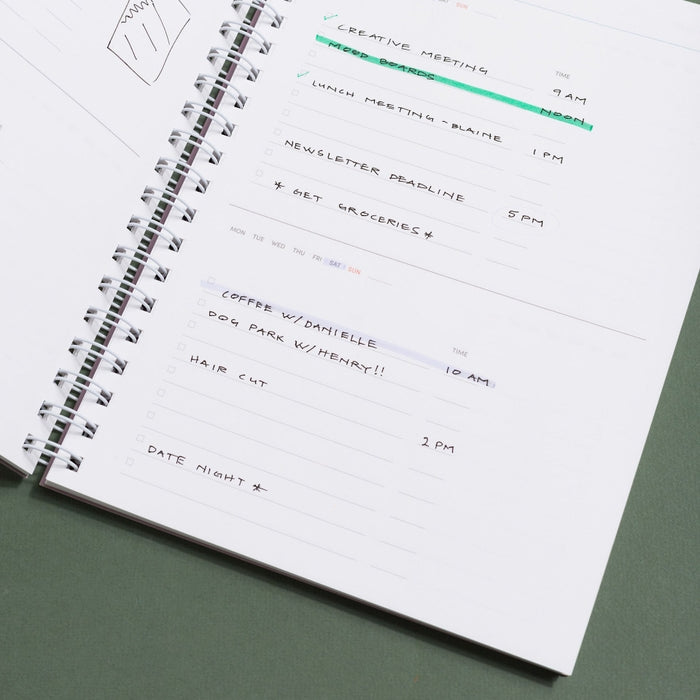 SUN
TIME
CREATIVE MEETING 9 AM
MOOD BOARDS NOON
LUNCH MEETING - BLAINE 1 PM
NEWSLETTER DEADLINE 5 PM
* GET GROCERIES *
MON TUE WED THU FRI SAT SUN
TIME
COFFEE W/ DANIELLE 10 AM
DOG PARK W/ HENRY!!
HAIR CUT 2 PM
DATE NIGHT *